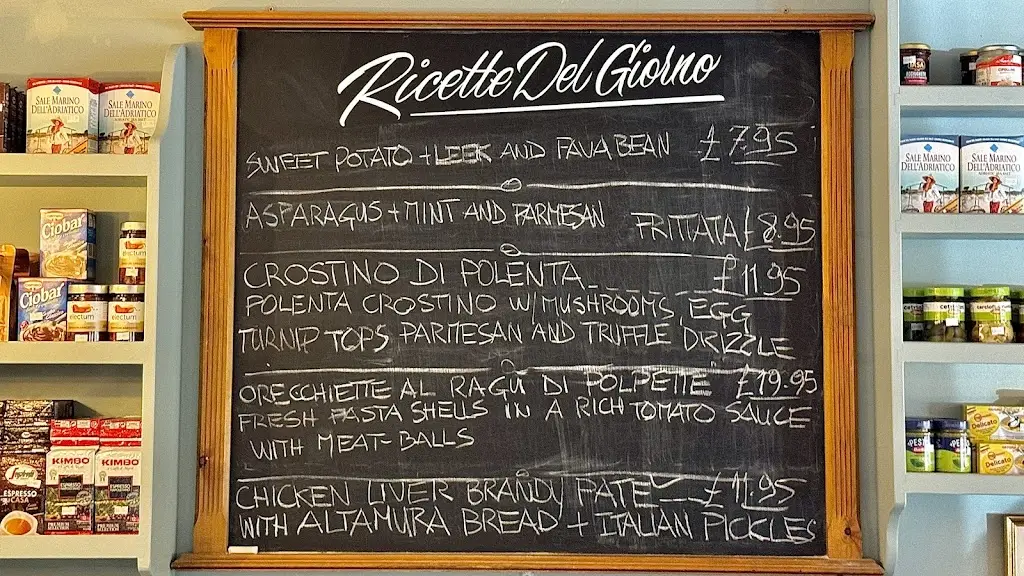 Ricette Del Giorno
SWEET POTATO + LEEK AND FAVA BEAN £7.95
ASPARAGUS + MINT AND PARMESAN FRITTATA £8.95
CROSTINO DI POLENTA £11.95
POLENTA CROSTINO W/ MUSHROOMS, EGG
TURNIP TOPS PARMESAN AND TRUFFLE DRIZZLE
ORECCHIETTE AL RAGÙ DI POLPETTE £19.95
FRESH PASTA SHELLS IN A RICH TOMATO SAUCE
WITH MEAT-BALLS
CHICKEN LIVER BRANDY PATE £11.95
WITH ALTAMURA BREAD + ITALIAN PICKLES
SALE MARINO
DELL'ADRIATICO
SALE MARINO
DELL'ADRIATICO
Ciobar
Ciobar
electum
electum
electum
ESPRESSO
CASA
KIMBO
KIMBO
SALE MARINO
DELL'ADRIATICO
SALE MARINO
DELL'ADRIATICO
Delicato
Delicato